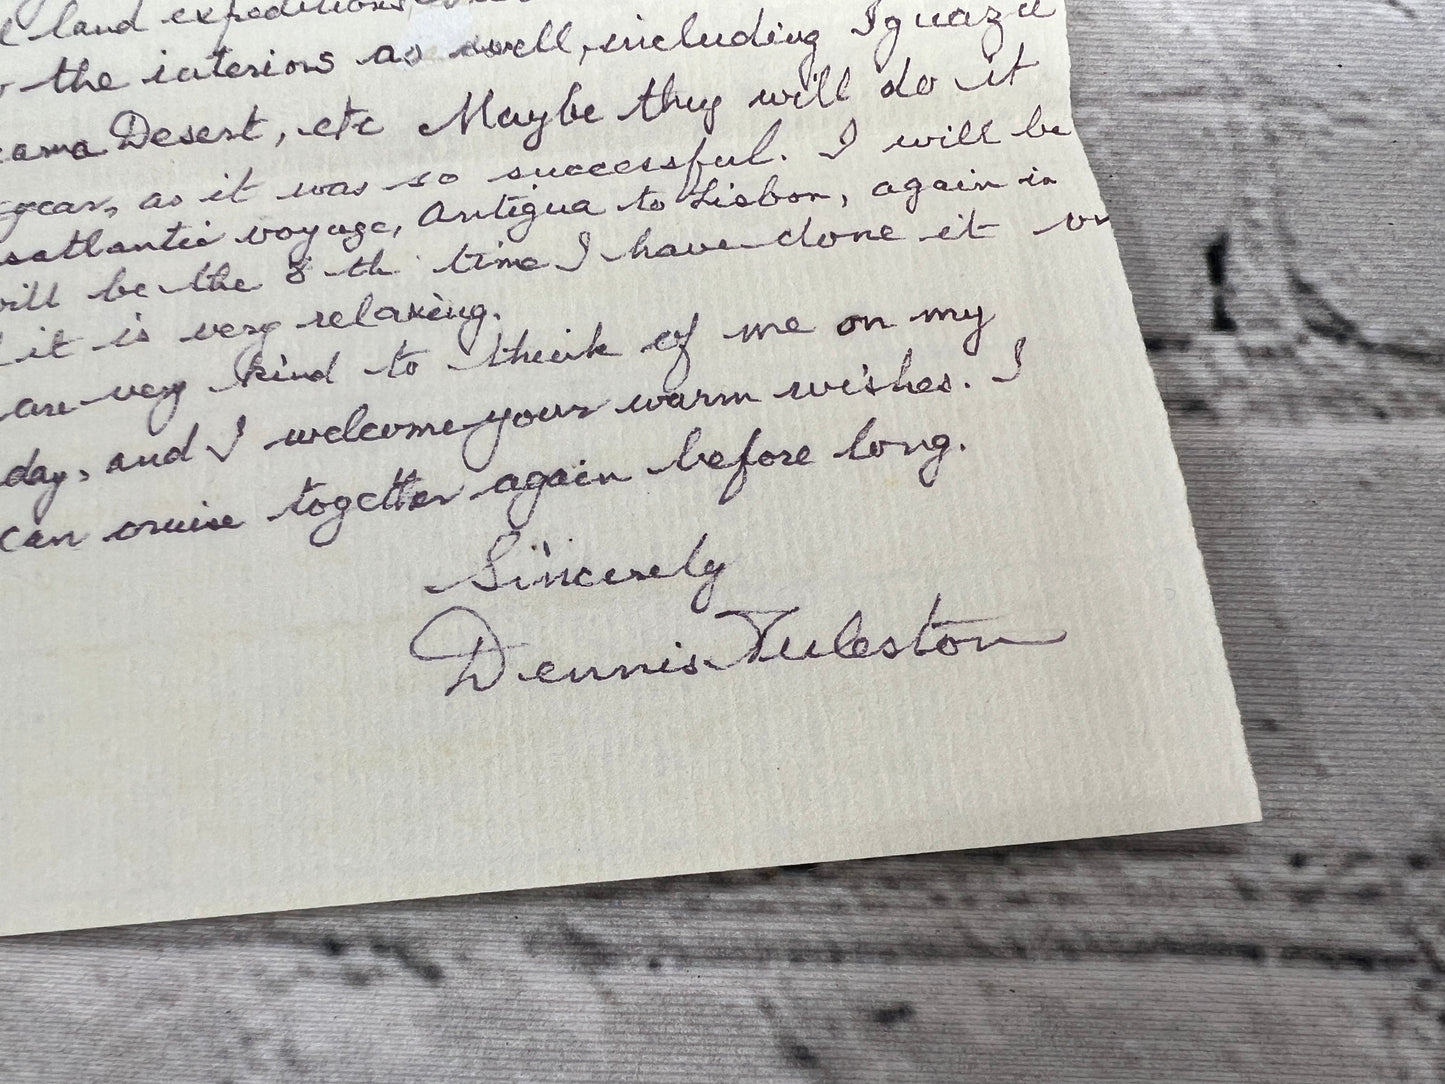 land expeditions
the interiors as well, including Iguazu
cama Desert, etc Maybe they will do it
year, as it was so successful. I will be
satlantic voyage, Antigua to Lisbon, again in
will be the 8th time I have done it
it is very relaxing.
are very kind to think of me on my
day, and I welcome your warm wishes. I
can cruise together again before long.
Sincerely
Dennis Puleston